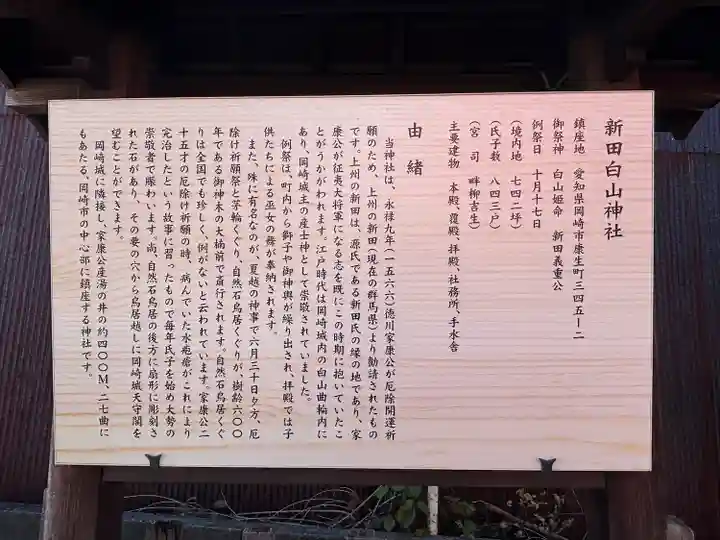 新田白山神社
鎮座地　愛知県岡崎市康生町三四五ー二
御祭神　白山姫命　新田義重公
例祭日　十月十七日
（境内地　七四二坪）
（氏子数　八四三戸）
（宮　司　畔柳吉生）
主要建物　本殿、覆殿、拝殿、社務所、手水舎
由緒
当神社は、永禄九年（一五六六）徳川家康公が厄除開運祈
願のため、上州の新田（現在の群馬県）より勧請されたもの
です。上州の新田は、源氏である新田氏の縁の地であり、家
康公が征夷大将軍になる志を既にこの時期に抱いていたこ
とがうかがわれます。江戸時代は岡崎城内の白山曲輪内に
あり、岡崎城主の産土神として崇敬されていました。
例祭は、町内から獅子や御神輿が繰り出され、拝殿では子
供たちによる巫女の舞が奉納されます。
また、殊に有名なのが、夏越の神事で六月三十日夕方、厄
除け祈願祭と茅輪くぐり、自然石鳥居くぐりが、樹齢六〇〇
年である御神木の大楠前で斎行されます。自然石鳥居くぐ
りは全国でも珍しく、例がないと云われています。家康公二
十五才の厄除け祈願の時、病んでいた水疱瘡がこれにより
完治したという故事に習ったもので毎年氏子を始め大勢の
崇敬者で賑わいます。尚、自然石鳥居の後方に扇形に彫刻さ
れた石があり、その要の穴から鳥居越しに岡崎城天守閣を
望むことができます。
岡崎城に隣接し、家康公産湯の井の約四〇〇M、二七曲に
もあたる、岡崎市の中心部に鎮座する神社です。